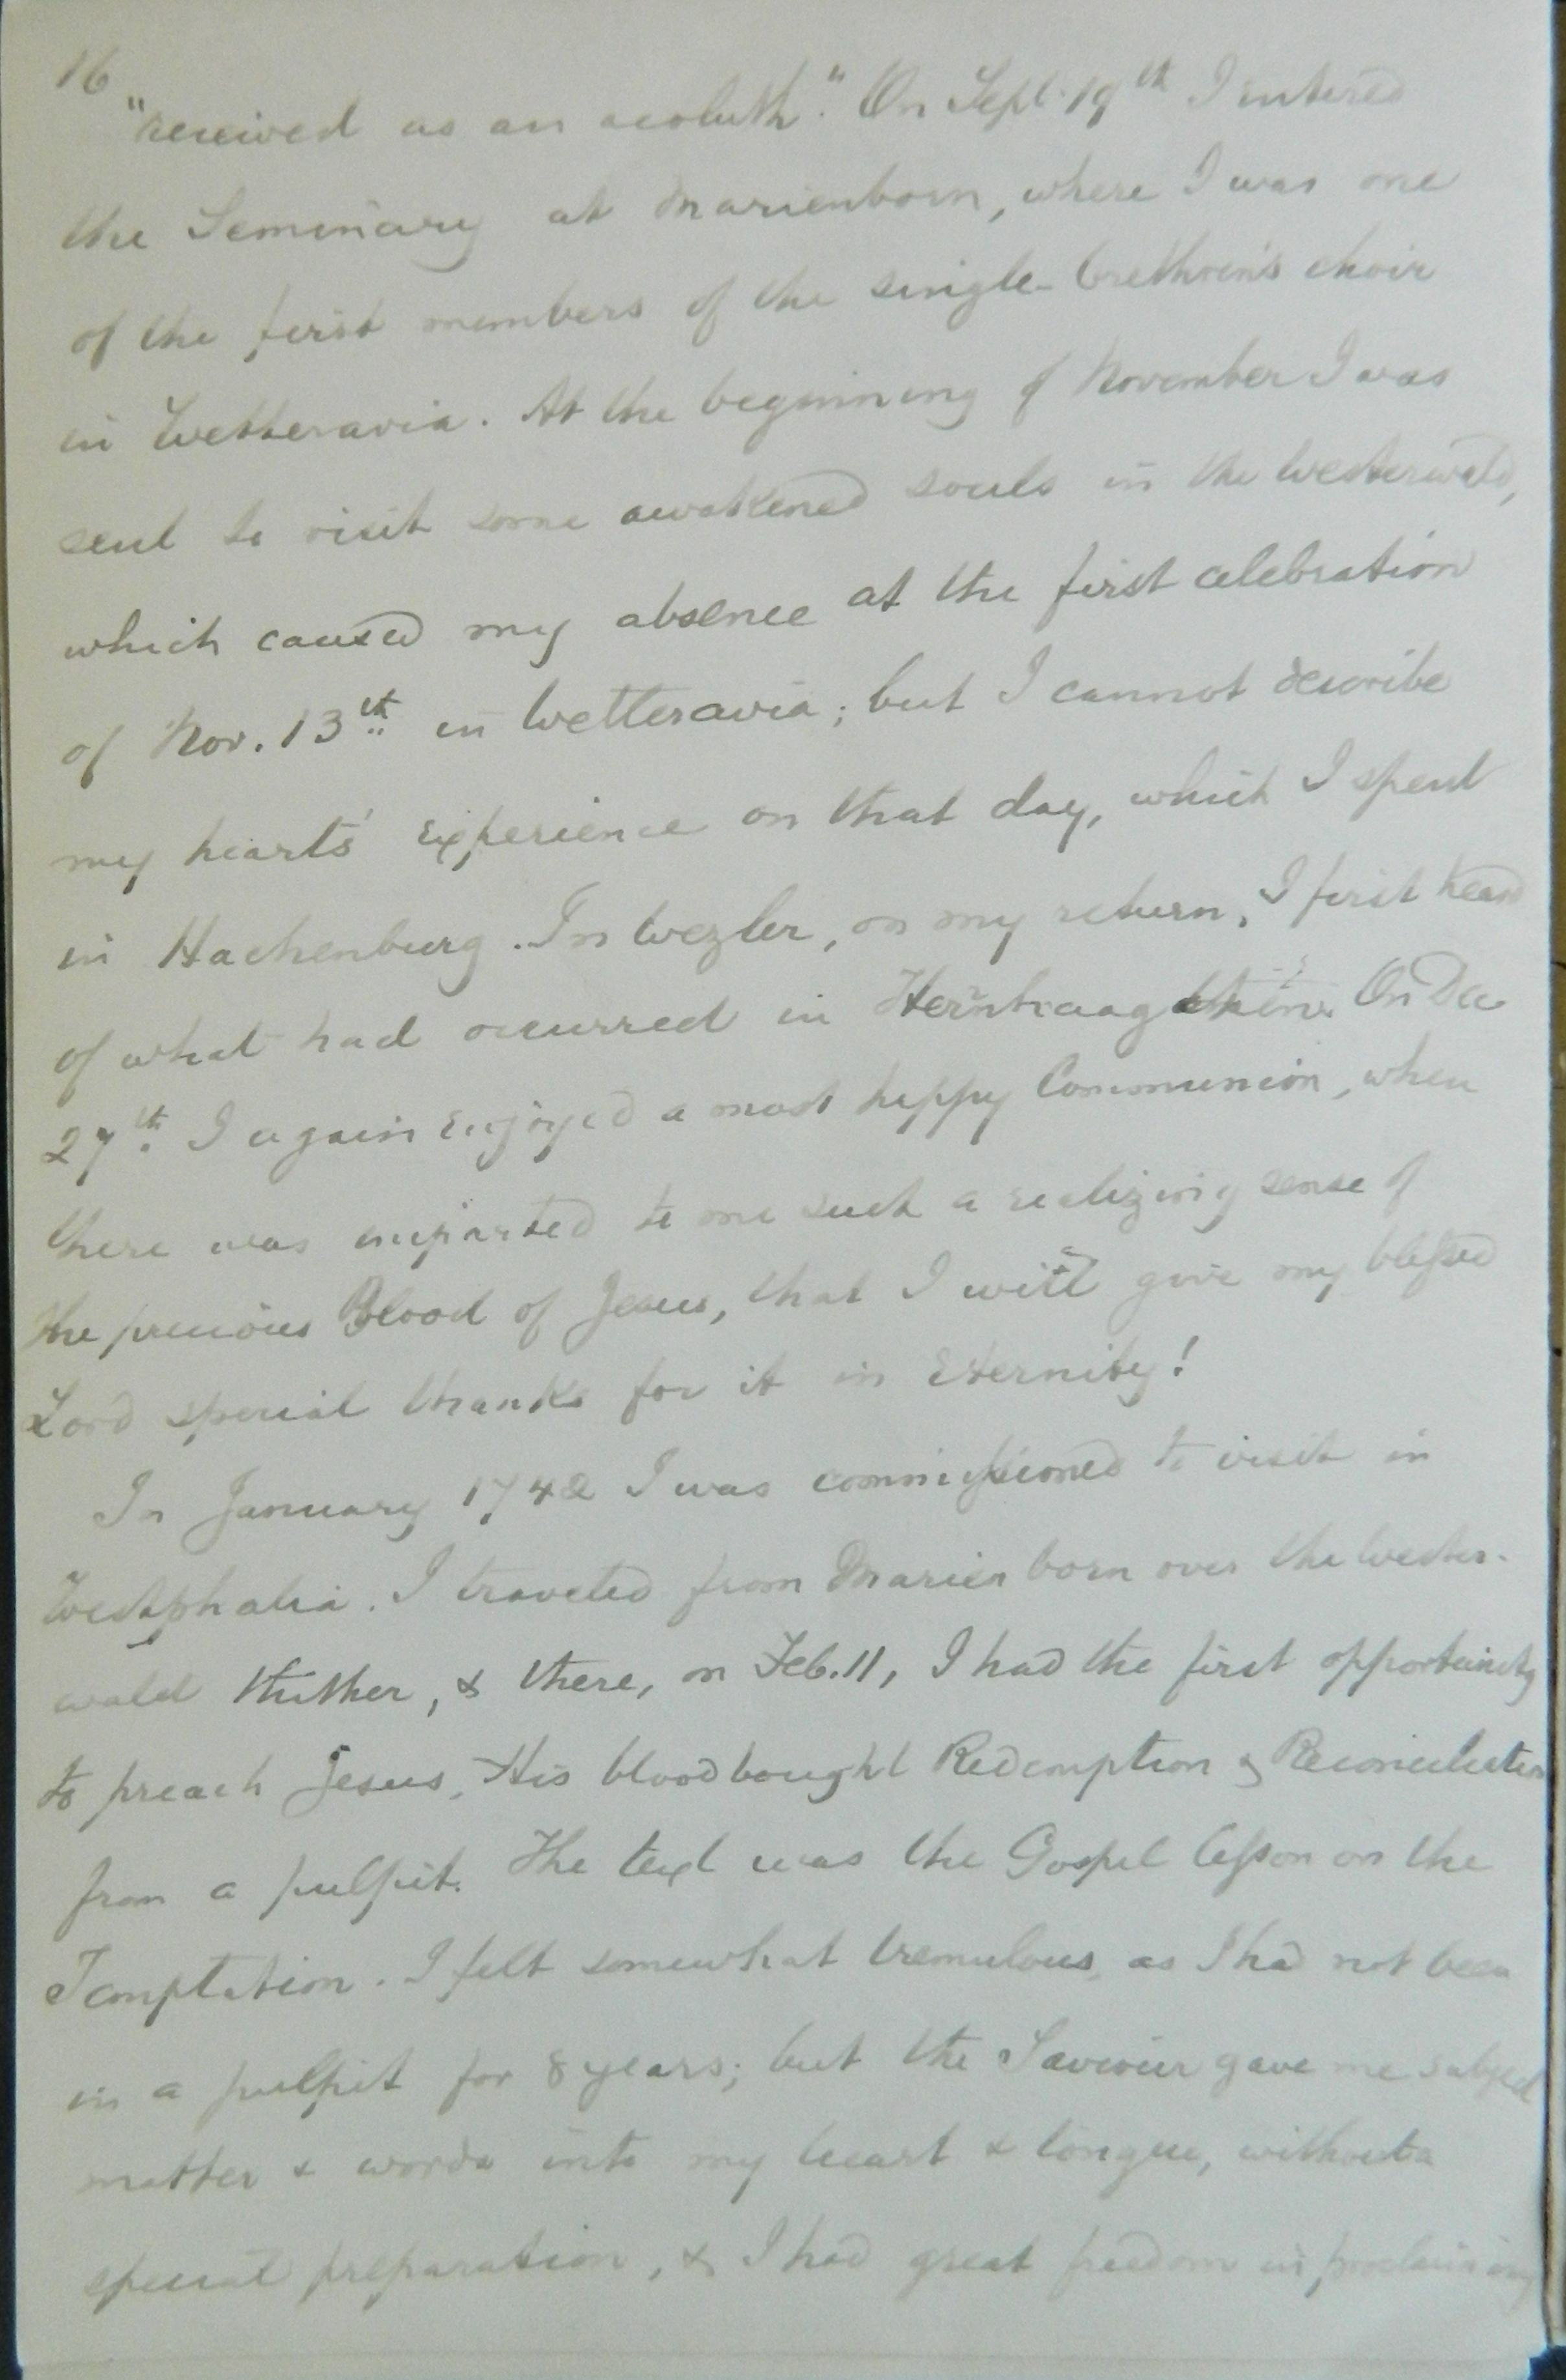 16
"received as an acoluth." On Sept. 19th I entered
the Seminary at Marienborn, where I was one
of the first members of the single-brethren's choir
in Wetteravia. At the beginning of November I was
sent to visit some awakened souls in the Westerwald,
which caused my absence at the first celebration
of Nov. 13th in Wetteravia; but I cannot describe
my heart's experience on that day, which I spent
in Hachenburg. In Wezler, on my return, I first heard
of what had occurred in Herrnhaag On Dec
27th I again enjoyed a most happy Communion, when
there was imparted to me such a realizing sense of
the precious Blood of Jesus, that I will give my blessed
Lord special thanks for it in Eternity!
In January 1742 I was commissioned to visit in
Westphalia. I traveled from Marienborn over the Wester-
wald thither, & there, on Feb. 11, I had the first opportunity
to preach Jesus, His bloodbought Redemption & Reconciliation
from a pulpit. The text was the Gospel lesson on the
Temptation. I felt somewhat tremulous, as I had not been
in a pulpit for 8 years; but the Saviour gave me subject
matter & words into my heart & tongue, without a
special preparation, & I had great freedom in proclaiming